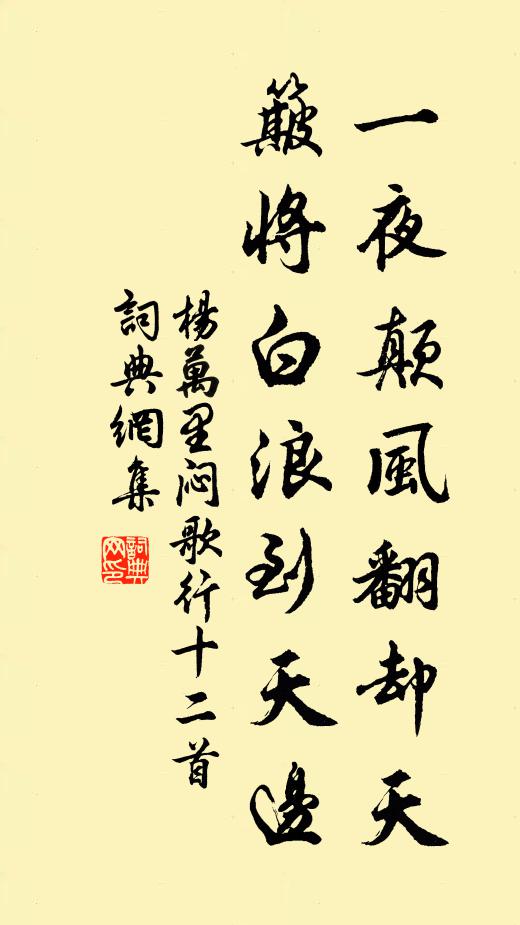 一夜颠風翻却天
簸將白浪到天邊
楊萬里闷歌行十二首
詞典網集
詞典網印